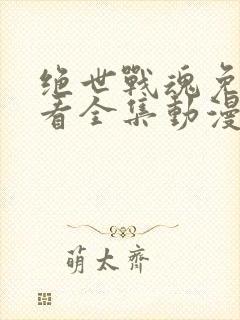 绝世戰魂免
看全集動漫
萌太齊